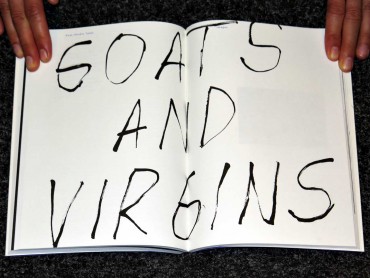 GOATS
AND
VIRGINS